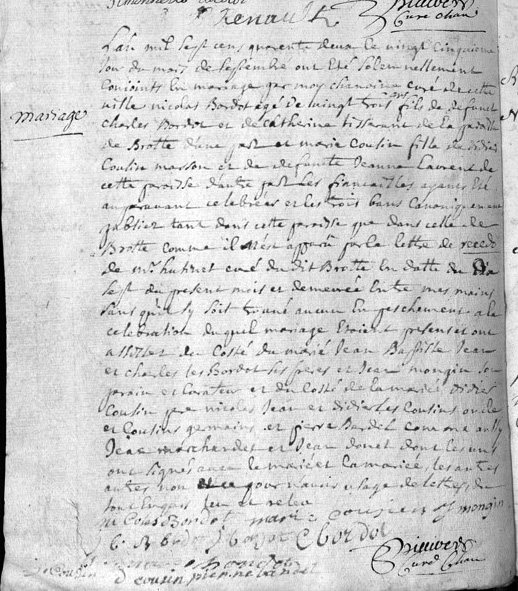 Renault
Curé Chan
Lan mil sept cens quarente deux le vingt cinquieme
Jour du mois de septembre ont Eté solemnellement
Conjoints En mariage par moy chanoine curé de cette
Mariage
ville nicolas Bordot agé de vingt trois ans fils de defunct
charles Bordot et de catherine tisserant de la paroisse
de Brotte d'une part et marie Cousin fille de didier
Cousin masson et de defunte Jeanne Laurent de
cette paroisse d'autre part Les fiancailles ayants Eté
auparavant celebrées et les trois bans Canoniquement
publiez tant dans cette paroisse que dans celle de
Brotte comme il m'est apparu par la lettre de recedo
de mr hutinet curé du dit Brotte En datte du
sept du present mois et demeurée Entre mes mains
sans qu'il sy soit trouvé aucun Empeschement a la
celebration duquel mariage Etoient presents et ont
assisté du Costé du marié Jean Baptiste Jean
et charles les Bordot ses freres et Jean mongin son
parain et Curateur et du Costé de la mariée didier
Cousin pere nicolas Jean et didier Les Cousins oncle
et Cousins germains et pierre Bardel comme aussy
Jean marchandet et Jean donet dont les uns
ont signés avec le marié et la mariée, les autres
autres non pour n'avoir usage de lettres, du
tout Enquis Leu et releu
nicolas Bordot marie cousin mongin
Bordot C bordot
J cousin
d cousin pierre bardel
Curé Chan